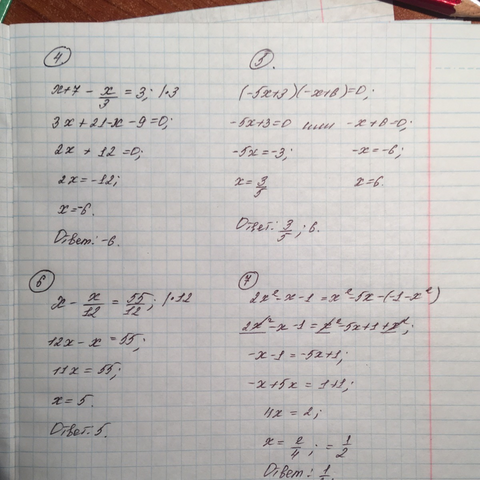 4
x+7 - x/3 = 3; | · 3
3x+21-x-9=0;
2x + 12=0;
2x=-12;
x=-6.
Ответ: -6.
5.
(-5x+3)(-x+6)=0;
-5x+3=0 или -x+6=0;
-5x=-3; -x=-6;
x=3/5 x=6.
Ответ: 3/5; 6.
6
x - x/12 = 55/12; | · 12
12x-x=55;
11x=55;
x=5.
Ответ. 5.
7
2x²-x-1=x²-5x-(-1-x²)
2x²-x-1=x²-5x+1+x²;
-x-1=-5x+1;
-x+5x=1+1;
4x=2;
x=2/4; =1/2
Ответ: 1/